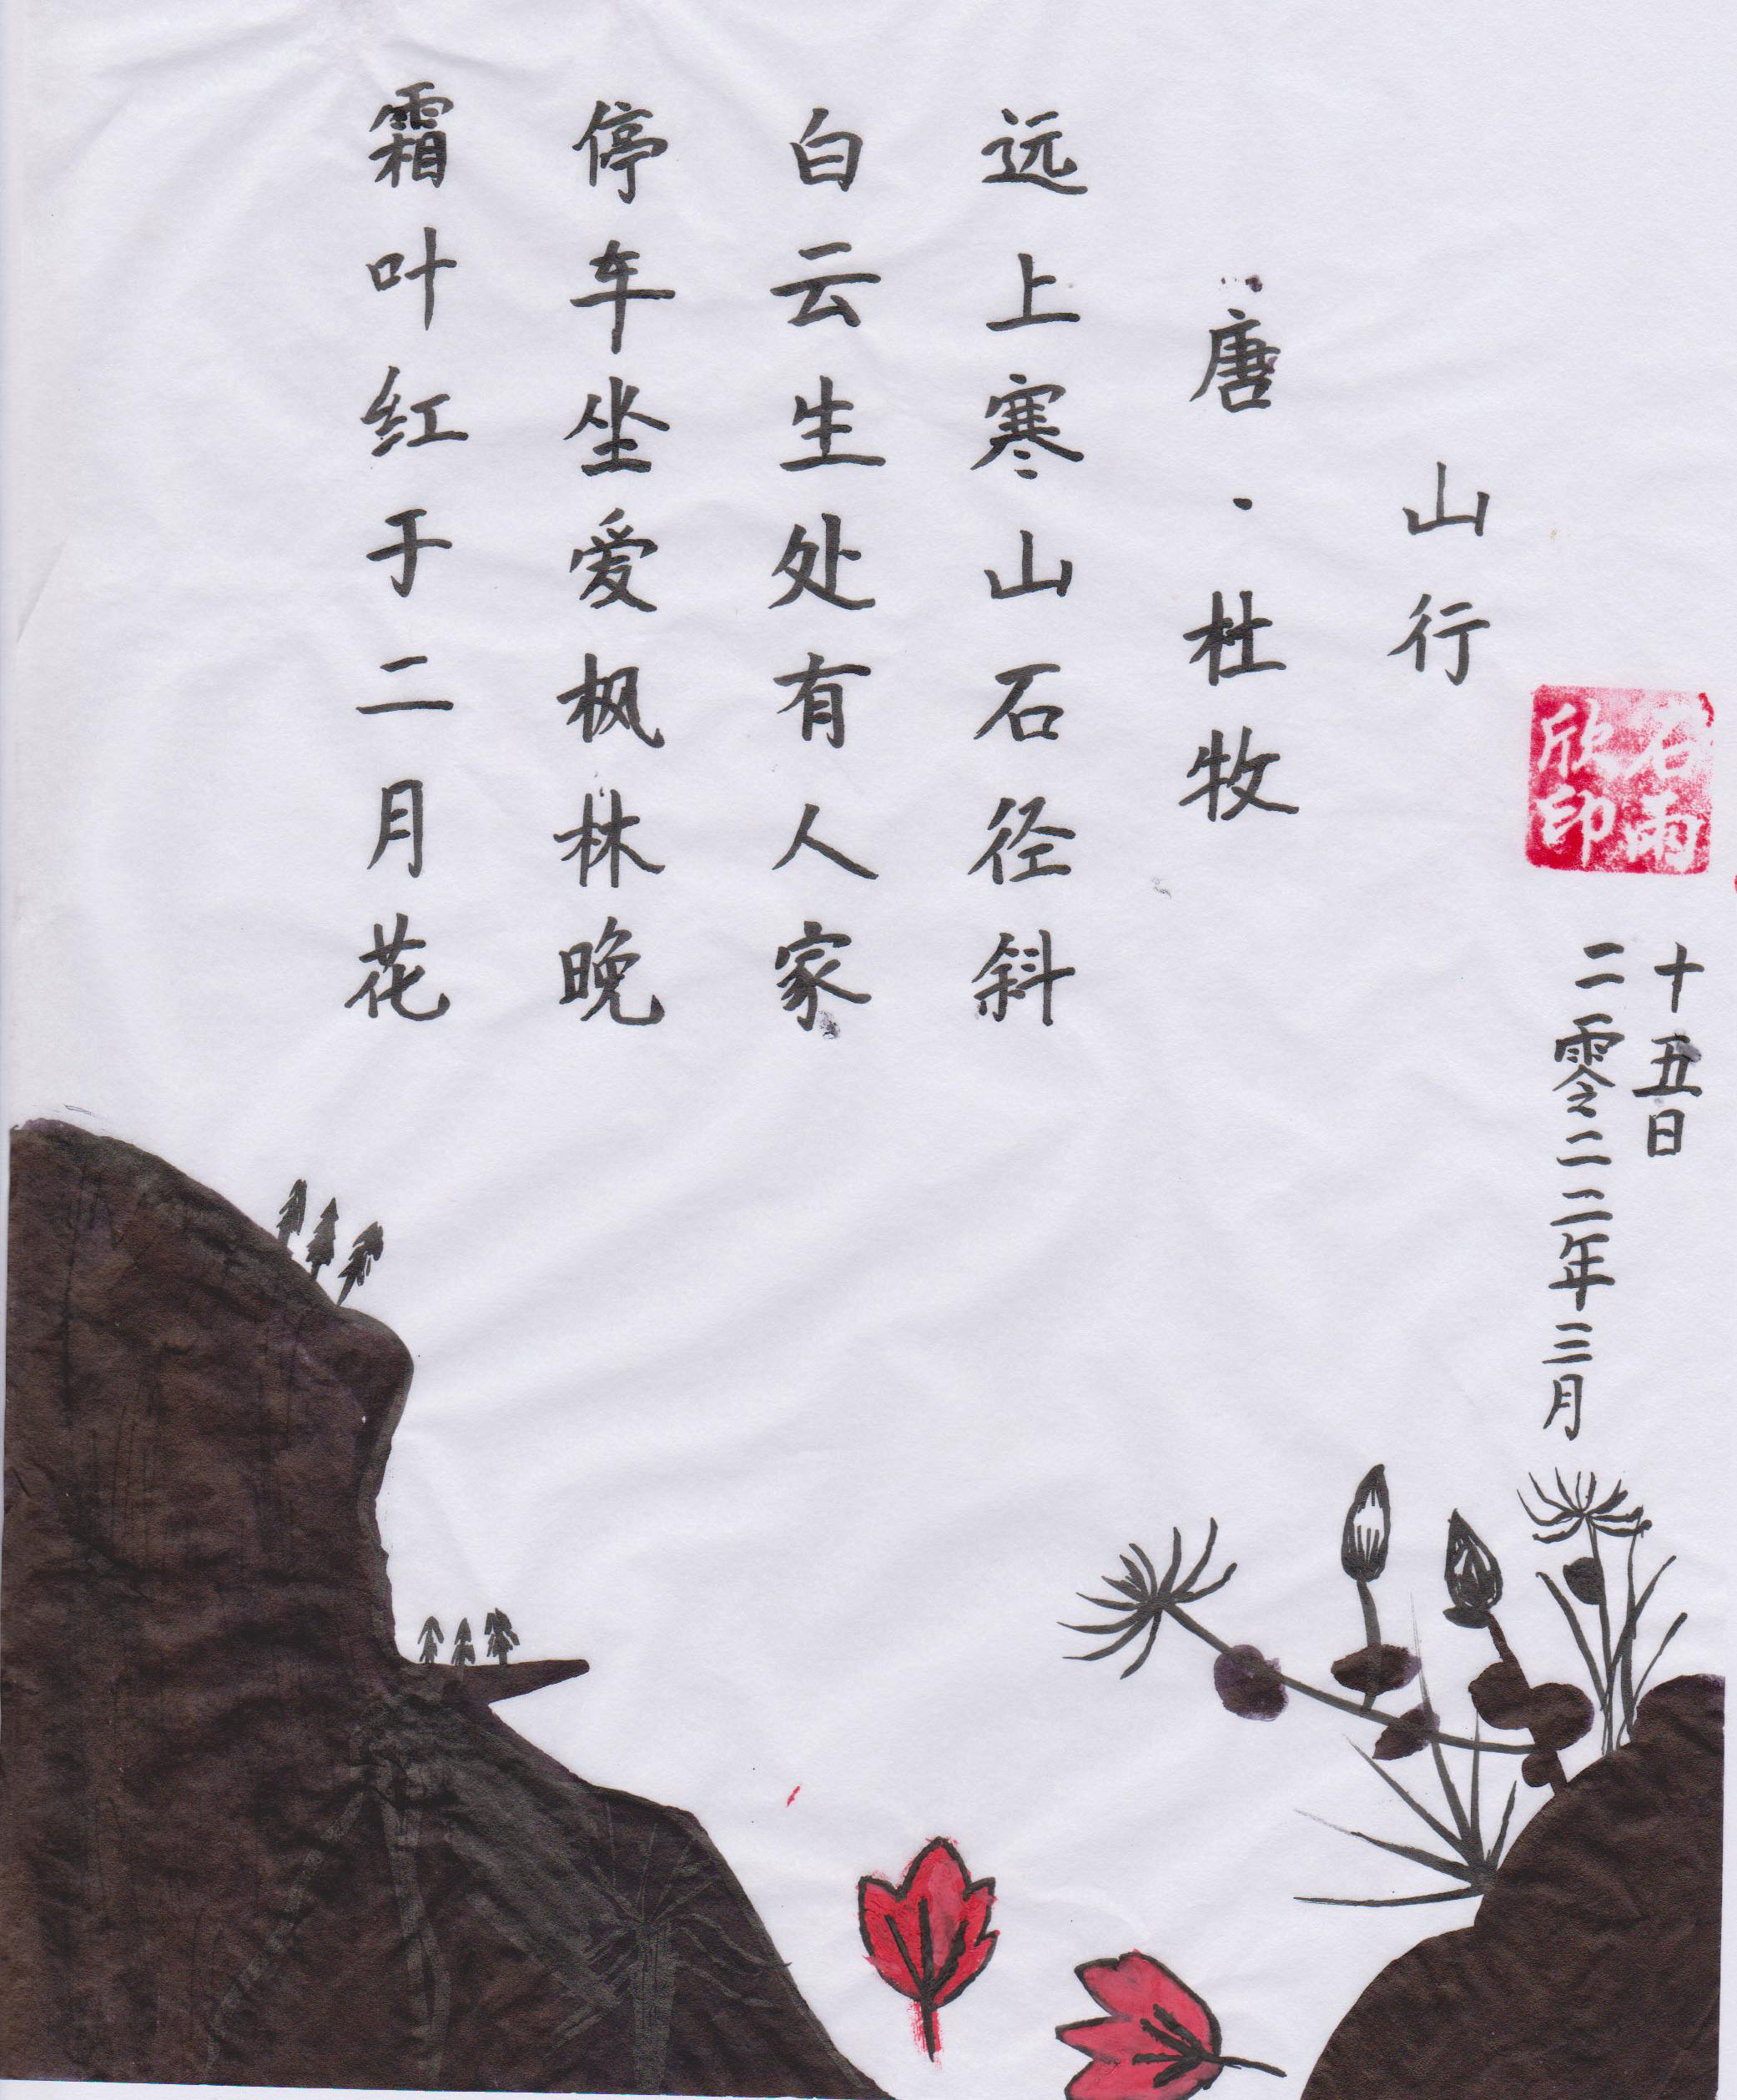 山行
唐·杜牧
远上寒山石径斜
白云生处有人家
停车坐爱枫林晚
霜叶红于二月花
石雨
欣印
十五日
二零二二年三月